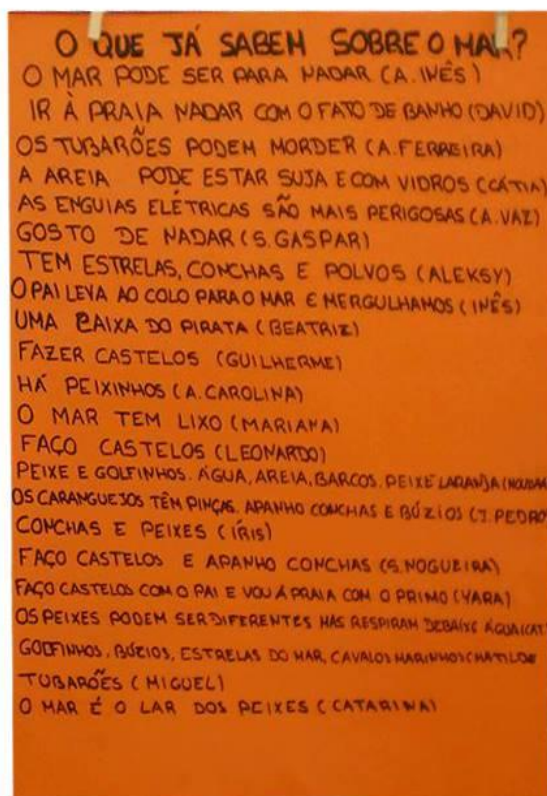 O QUE JÁ SABEM SOBRE O MAR?
O MAR PODE SER PARA NADAR (A. INÊS)
IR À PRAIA NADAR COM O FATO DE BANHO (DAVID)
OS TUBARÕES PODEM MORDER (A. FERREIRA)
A AREIA PODE ESTAR SUJA E COM VIDROS (CÁTIA)
AS ENGUIAS ELÉTRICAS SÃO MAIS PERIGOSAS (A. VAZ)
GOSTO DE NADAR (S. GASPAR)
TEM ESTRELAS, CONCHAS E POLVOS (ALEKSY)
O PAI LEVA AO COLO PARA O MAR E MERGULHAMOS (INÊS)
UMA CAIXA DO PIRATA (BEATRIZ)
FAZER CASTELOS (GUILHERME)
HÁ PEIXINHOS (A. CAROLINA)
O MAR TEM LIXO (MARIANA)
FAÇO CASTELOS (LEONARDO)
PEIXE E GOLFINHOS. ÁGUA, AREIA, BARCOS. PEIXE LARANJA
OS CARANGUEJOS TÊM PINÇAS. APANHO CONCHAS E BÚZIOS (J. PEDRO
CONCHAS E PEIXES (ÍRIS)
FAÇO CASTELOS E APANHO CONCHAS (S. NOGUEIRA)
FAÇO CASTELOS COM O PAI E VOU À PRAIA COM O PRIMO (YARA)
OS PEIXES PODEM SER DIFERENTES MAS RESPIRAM DEBAIXE ÁGUA
GOLFINHOS, BÚZIOS, ESTRELAS DO MAR, CAVALOS MARINHOS (MATILDE
TUBARÕES (MIGUEL)
O MAR É O LAR DOS PEIXES (CATARINA)